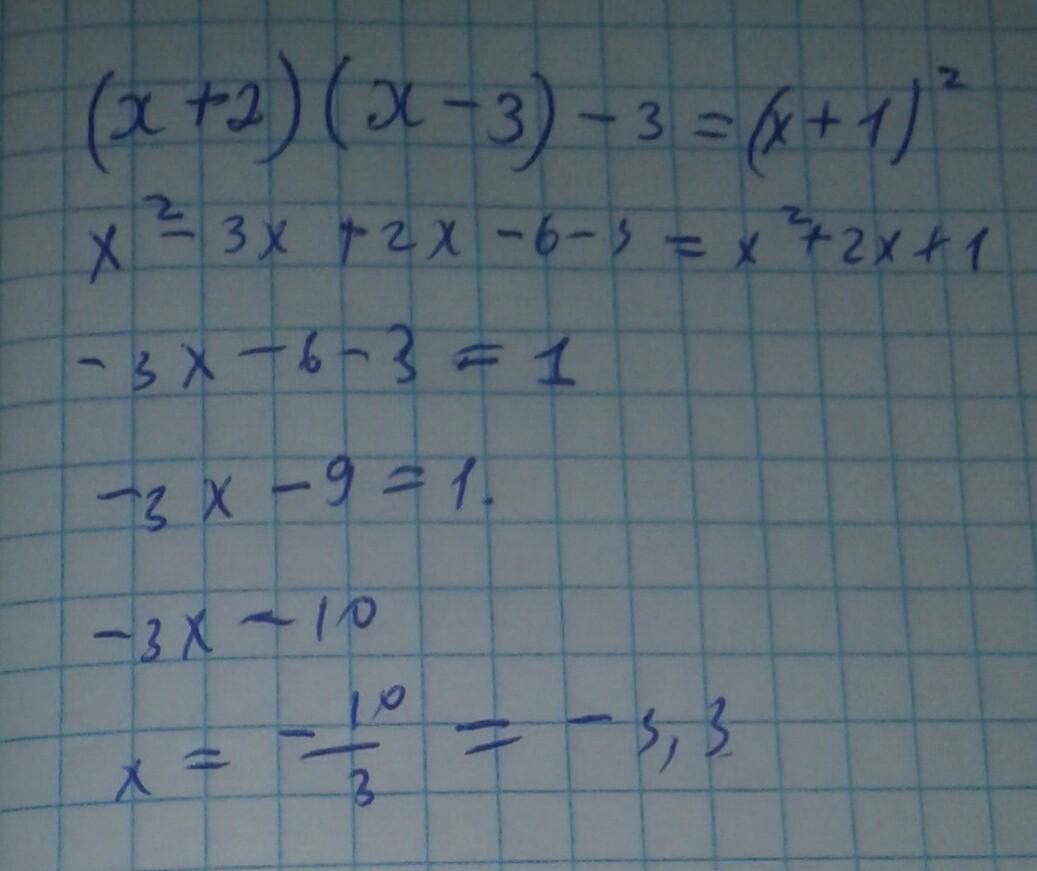 (x+2)(x-3)-3=(x+1)²
x²-3x+2x-6-3=x²+2x+1
-3x-6-3=1
-3x-9=1.
-3x-10
x=-10/3=-3,3